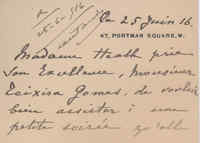 25-6-916
Ce 25 Juin 16.
47, PORTMAN SQUARE, W.
Madame Heath prie
Son Excellence, Monsieur
Teixeira Gomes, de vouloir
bien assister à une
petite soirée qu'elle